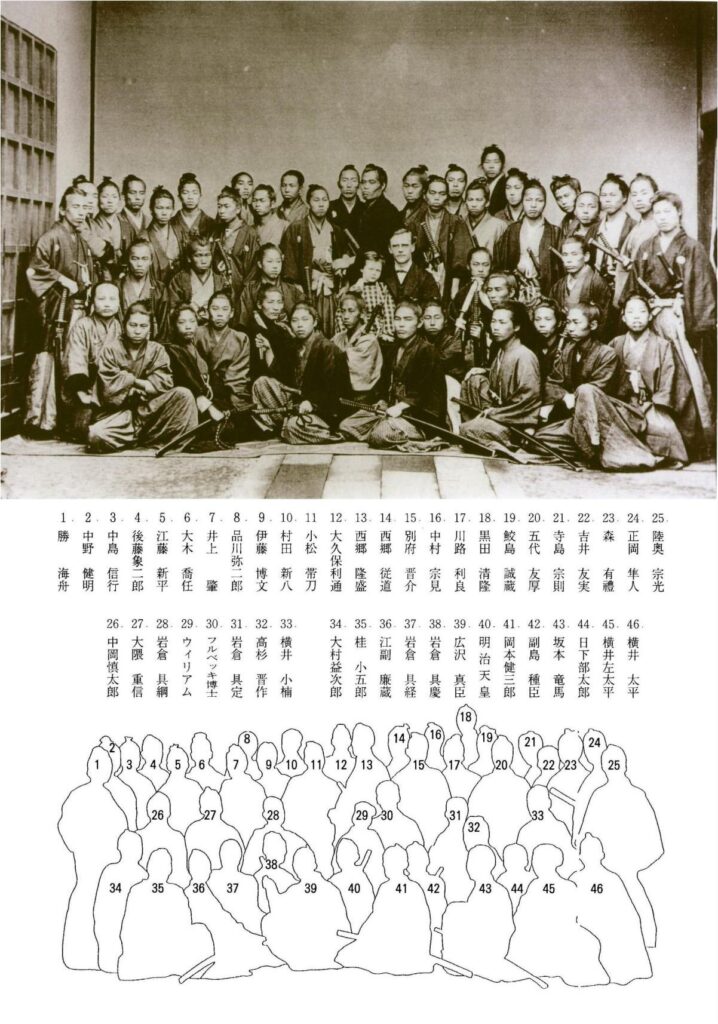 1. 勝 海舟
2. 中野 健明
3. 中島 信行
4. 後藤象二郎
5. 江藤 新平
6. 大木 喬任
7. 井上 馨
8. 品川弥二郎
9. 伊藤 博文
10. 村田 新八
11. 小松 帯刀
12. 大久保利通
13. 西郷 隆盛
14. 西郷 従道
15. 別府 晋介
16. 中村 宗見
17. 川路 利良
18. 黒田 清隆
19. 鮫島 誠蔵
20. 五代 友厚
21. 寺島 宗則
22. 吉井 友実
23. 森 有禮
24. 正岡 隼人
25. 陸奥 宗光
26. 中岡慎太郎
27. 大隈 重信
28. 岩倉 具綱
29. ウィリアム
30. フルベッキ博士
31. 岩倉 具定
32. 高杉 晋作
33. 横井 小楠
34. 大村益次郎
35. 桂 小五郎
36. 江副 廉蔵
37. 岩倉 具経
38. 岩倉 具慶
39. 広沢 真臣
40. 明治天皇
41. 岡本健三郎
42. 副島 種臣
43. 坂本 竜馬
44. 日下部太郎
45. 横井左太平
46. 横井 太平
1 2 3 4 5 6 7 8 9 10 11 12 13 14 15 16 17 18 19 20 21 22 23 24 25
26 27 28 29 30 31 32 33
34 35 36 37 38 39 40 41 42 43 44 45 46